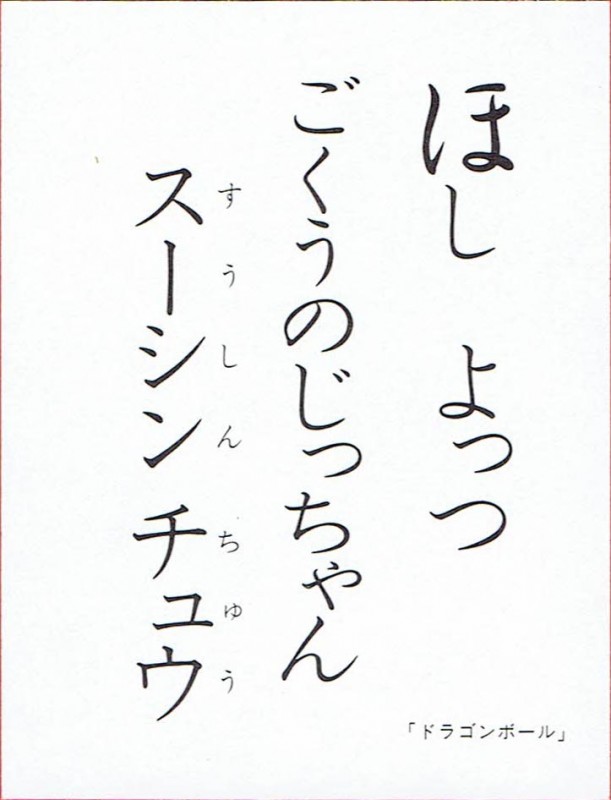 ほし よっつ
ごくうのじっちゃん
スーシンチュウ
すうしんちゅう
「ドラゴンボール」